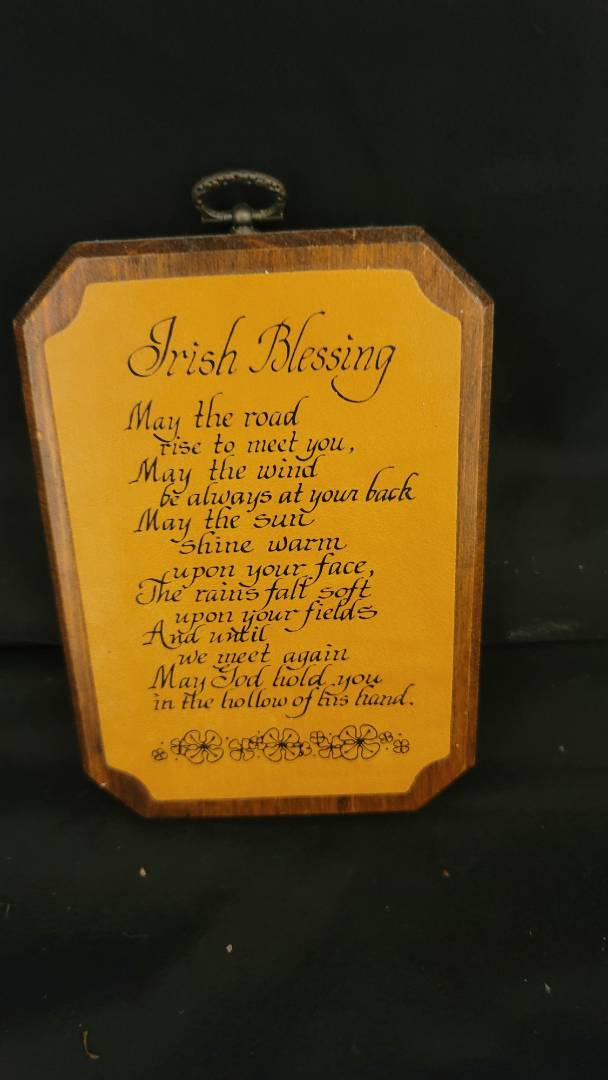 Irish Blessing
May the road
rise to meet you,
May the wind
be always at your back
May the sun
shine warm
upon your face,
The rains fall soft
upon your fields
And until
we meet again
May God hold you
in the hollow of his hand.